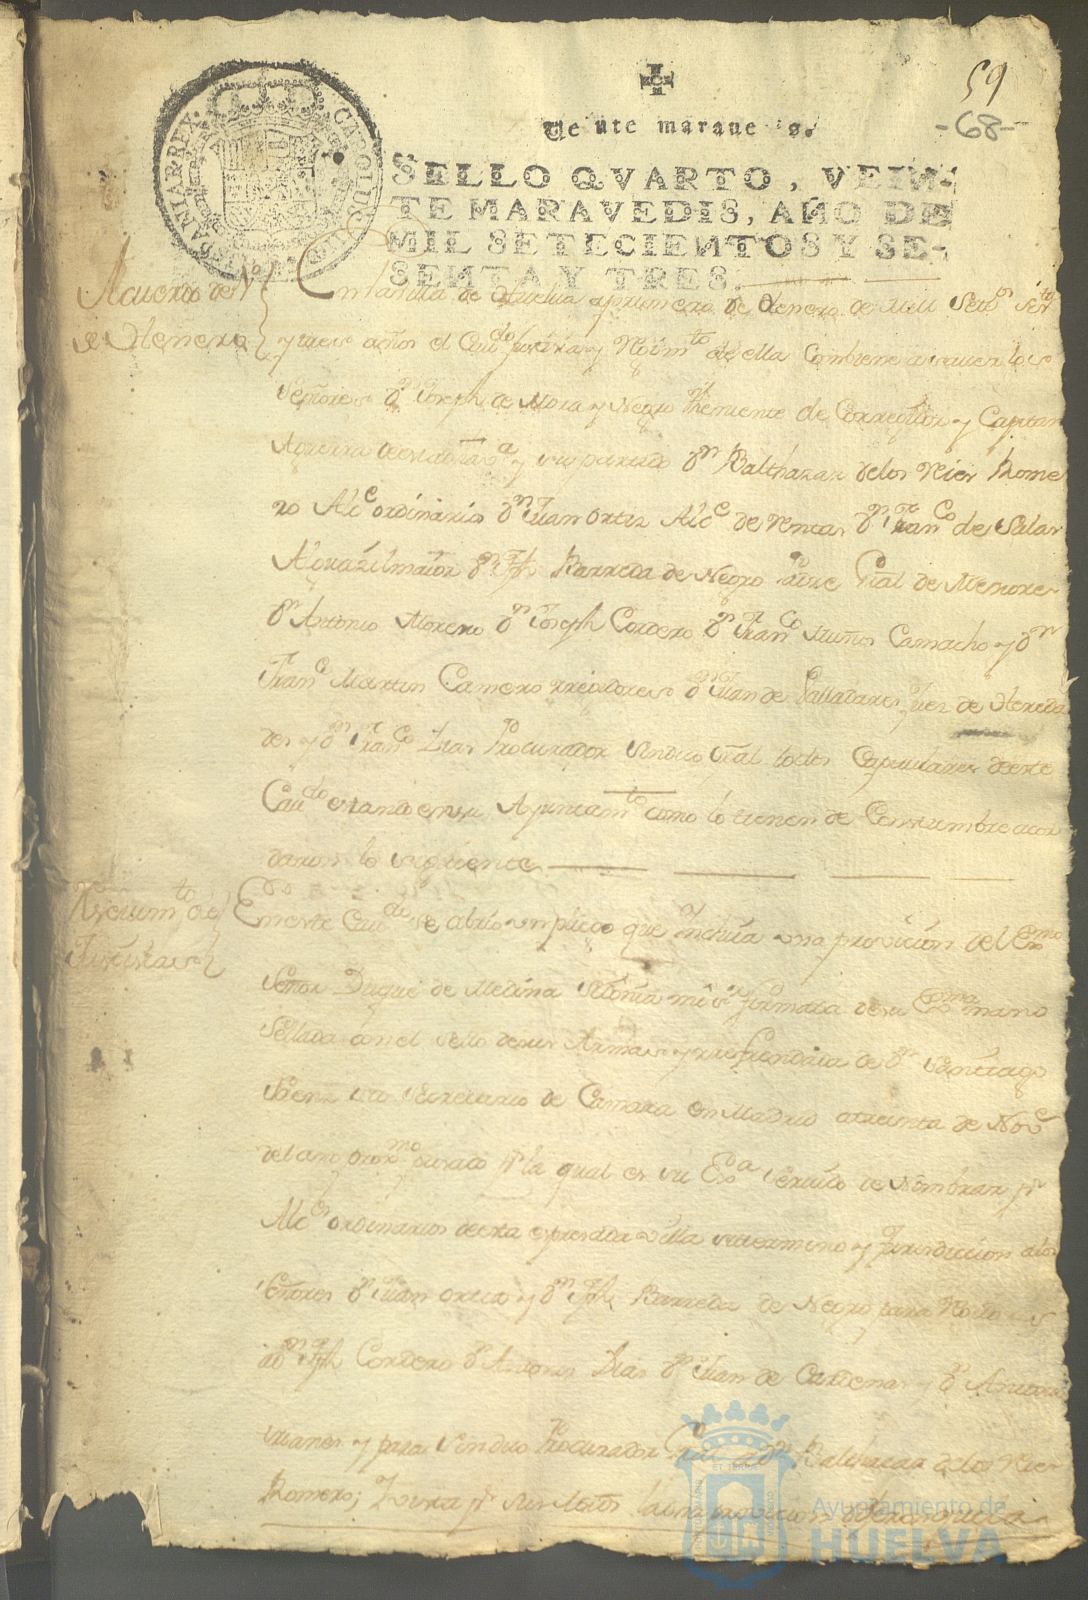 59
-68-
CAROLUS III HISPANIAR.REX.
Veinte maravedis.
SELLO QVARTO, VEIN-
TE MARAVEDIS, AÑO DE
MIL SETECIENTOS Y SE-
SENTA Y TRES.
Acuerdo de 1º
de Henero
En la villa de Huelva a primero de Henero de mill Setos Ses.ta
y tres años el Cav.do Justizia y Rejim.to de ella Combiene a saver los
Señores Dn Joseph de Mora y Negro Theniente de Correxidor y Capitan
Aguerra de esta dha va y su partido Dn Balthazar de los Ries Rome
ro Alce ordinario Dn Juan Ortiz Alce de Ventas Dn Franco de Salas
Alguazil maior Dn Jph Barreda de Negro Padre Gral de Menores
Dn Antonio Moreno Dn Joseph Cordero Dn Franco Muños Camacho y Dn
Franc Martin Camero rrejidores Dn Juan de Valladares Juez de Hereda
des y Dn Franco Dias Procurador Sindico Gral todos Capitulares de este
Cavdo estando en su Ayuntamto como lo tienen de Constumbre acor
daron lo siguiente
Reseumto de
Justizias
En este Cavdo se abrio un pliego que Incluia una provicion del Exmo
Señor Duque de Medina Sidonia mi Sr firmada de su Exma mano
Sellada con el Sello de sus Armas y rrefrendada de Dn Santiago
Saenz su Secretario de Camara en Madrid a treinta de Nove
del año proxmo pasado pr la qual es su Exa Servido de Nombrar pr
Alces ordinarios de esta expresada villa su termino y Jurisdiccion a los
Señores Dn Juan Ortiz y Dn Jph Barreda de Negro para Rexidores
a Dn Jph Cordero Dn Antonio Dias Dn Juan de Cardenas y Dn Antonio
y para Sindico Procurador Gral a Dn Balthazar de los Ries
Romero; Y vista pr Sus
Ayuntamiento de
HUELVA